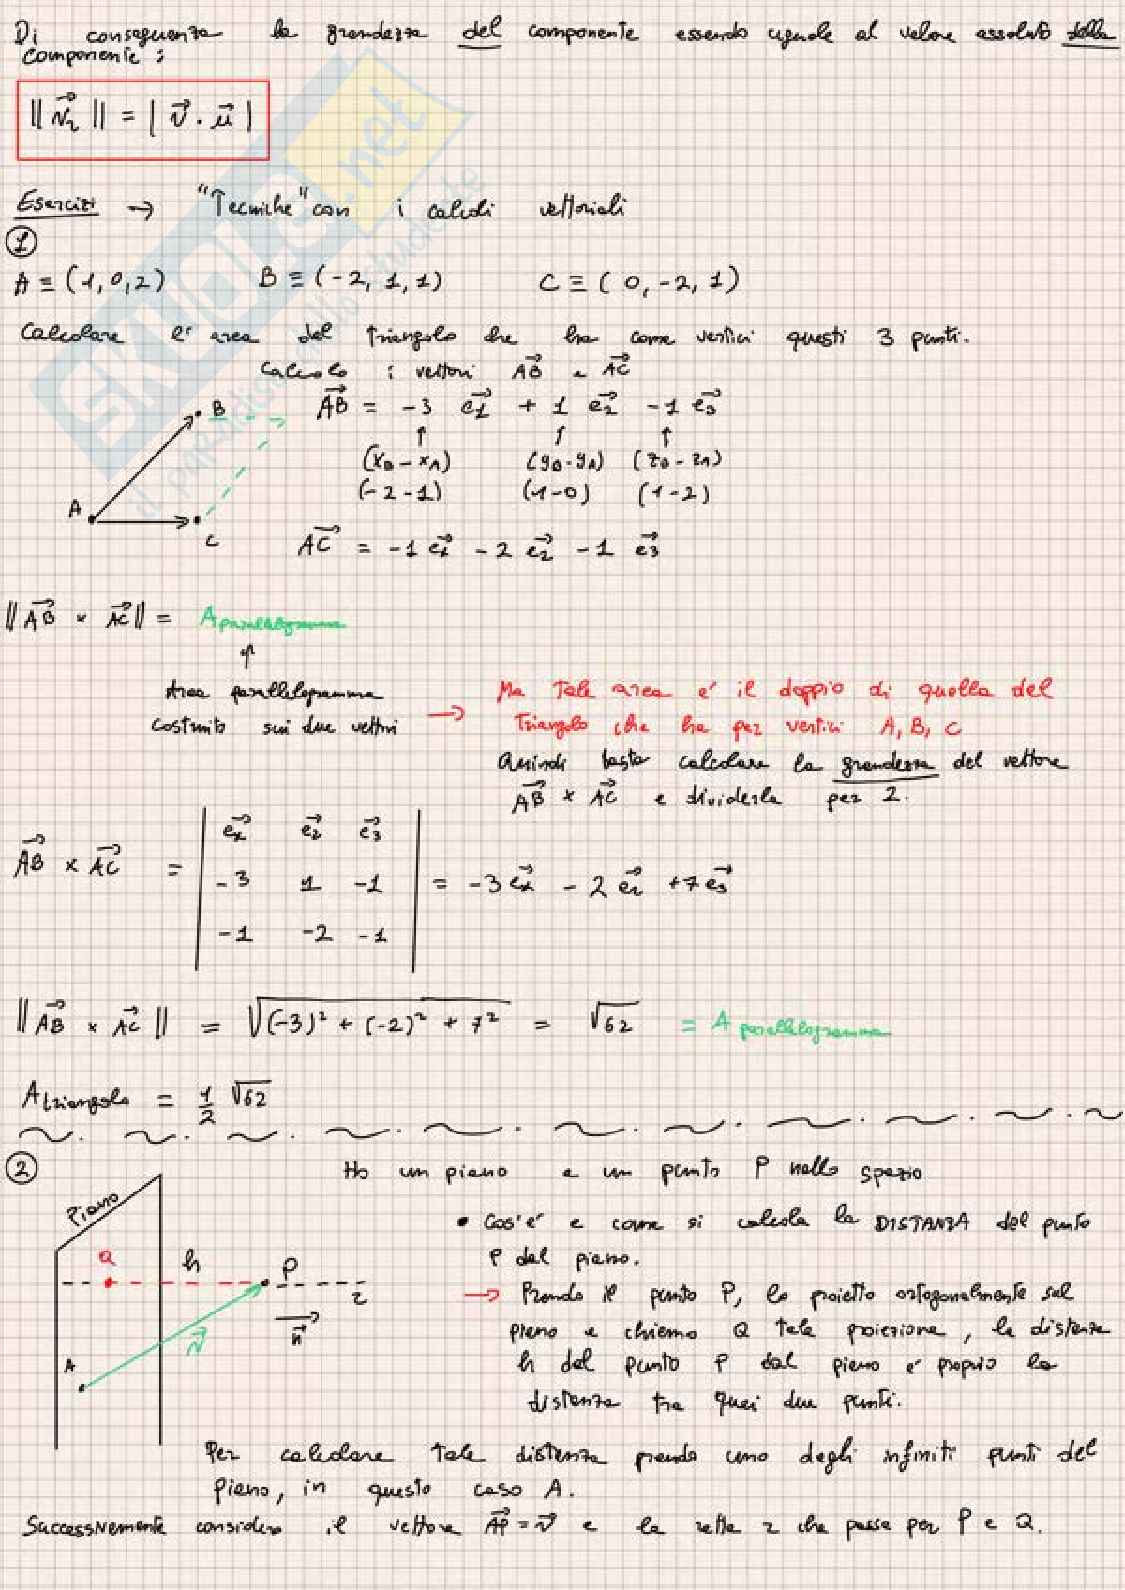 Di conseguenza la grandezza del componente essendo uguale al valore assoluto della
componente:
||v⃗r|| = |v⃗ · u⃗|
Esercizi → "Tecniche" con i calcoli vettoriali
①
A ≡ (1, 0, 2) B ≡ (-2, 1, 1) C ≡ (0, -2, 1)
Calcolare l'area del triangolo che ha come vertici questi 3 punti.
Calcolo i vettori AB⃗ e AC⃗
AB⃗ = -3 e1⃗ + 1 e2⃗ - 1 e3⃗
↑ ↑ ↑
(xB - xA) (yB - yA) (zB - zA)
(-2 -1) (1-0) (1-2)
B
A
C
AC⃗ = -1 e1⃗ - 2 e2⃗ - 1 e3⃗
||AB⃗ × AC⃗|| = A parallelogramma
↑
Area parallelogramma
costruito sui due vettori
→ Ma tale area e' il doppio di quella del
triangolo che ha per vertici A, B, C
Quindi basta calcolare la grandezza del vettore
AB⃗ × AC⃗ e dividerla per 2.
e1⃗ e2⃗ e3⃗
AB⃗ × AC⃗ = | -3 1 -1 | = -3 e1⃗ - 2 e2⃗ + 7 e3⃗
-1 -2 -1
||AB⃗ × AC⃗|| = √(-3)² + (-2)² + 7² = √62 = A parallelogramma
A triangolo = 1/2 √62
② Ho un piano e un punto P nello spazio
Piano
Q
h
P
r
n⃗
v⃗
A
• Cos'e' e come si calcola la DISTANZA del punto
P dal piano.
→ Prendo il punto P, lo proietto ortogonalmente sul
piano e chiamo Q tale proiezione, la distanza
h del punto P dal piano e' proprio la
distanza tra quei due punti.
Per calcolare tale distanza prendo uno degli infiniti punti del
piano, in questo caso A.
Successivamente considero il vettore AP⃗ = v⃗ e la retta r che passa per P e Q.
SKUOLA.net